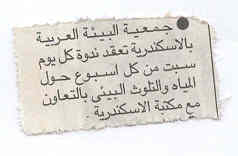 جمعية البيئة العربية
بالاسكندرية تعقد ندوة كل يوم
سبت من كل اسبوع حول
المياه والتلوث البيئى بالتعاون
مع مكتبة الاسكندرية